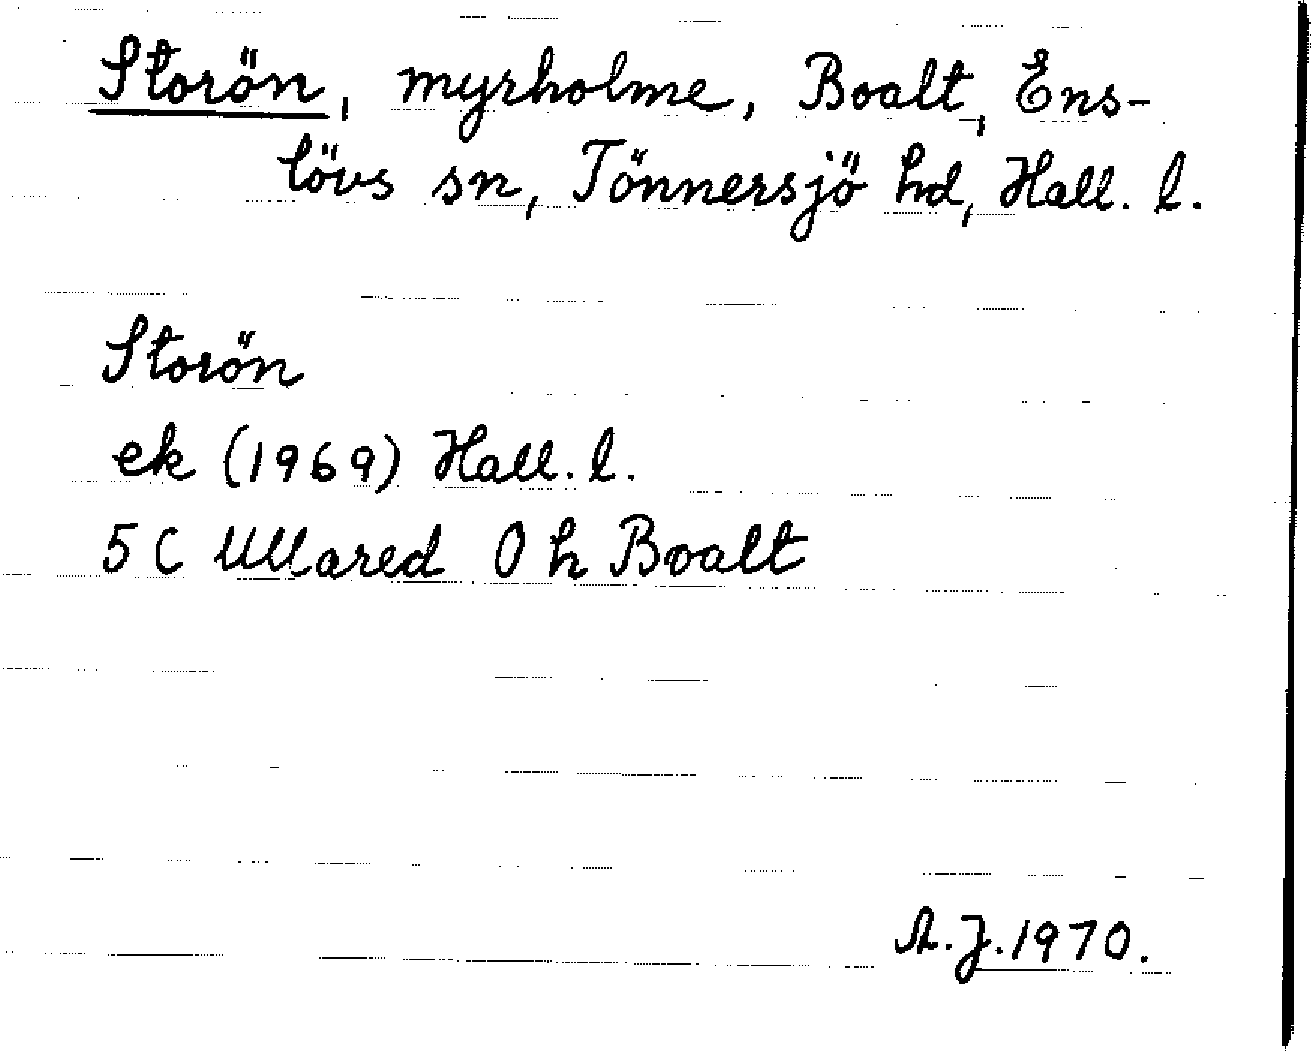 Storön, myrholme, Boalt, Ens-
lövs sn, Tönnersjö hd, Hall. l.
Storön
ek (1969) Hall. l.
5 C Ullared 0 h Boalt
A.J. 1970.